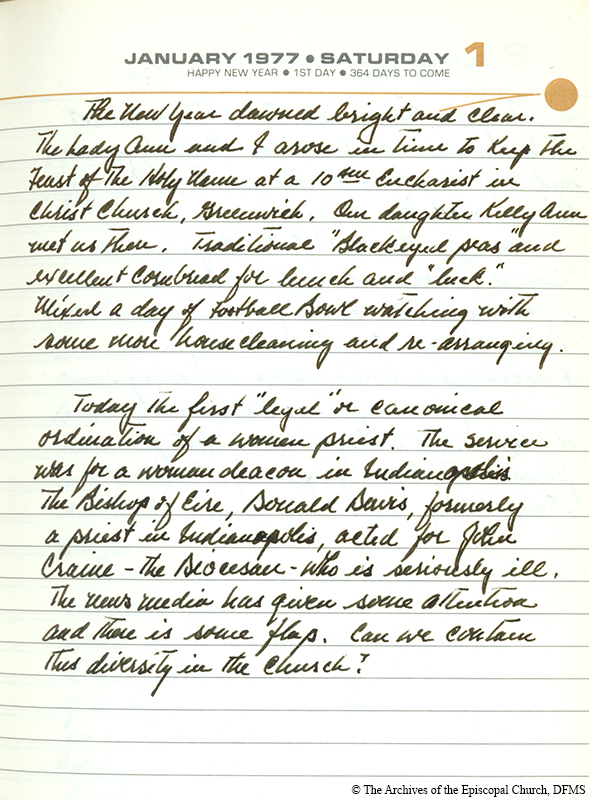 JANUARY 1977 ● SATURDAY 1
HAPPY NEW YEAR ● 1ST DAY ● 364 DAYS TO COME
The New Year dawned bright and clear.
The Lady Ann and I arose in time to keep the
Feast of The Holy Name at a 10 am Eucharist in
Christ Church, Greenwich. Our daughter Kelly Ann
met us there. Traditional "Blackeyed peas" and
excellent Cornbread for lunch and "luck."
Mixed a day of Football Bowl watching with
some more housecleaning and re-arranging.
Today the first "legal" or canonical
ordination of a women priest. The service
was for a woman deacon in Indianapolis
The Bishop of Eire, Donald Davis, formerly
a priest in Indianapolis, acted for John
Craine - the Diocesan - who is seriously ill.
The news media has given some attention
and there is some flap. Can we contain
this diversity in the Church?
© The Archives of the Episcopal Church, DFMS